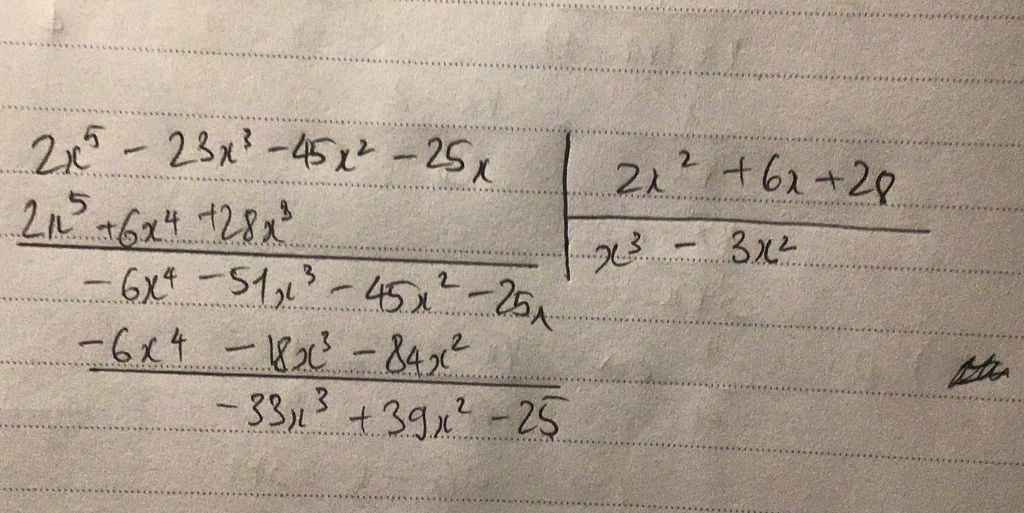 2x⁵ - 23x³ - 45x² - 25x
2x² + 6x + 28
2x⁵ + 6x⁴ + 28x³
x³ - 3x²
- 6x⁴ - 51x³ - 45x² - 25x
- 6x⁴ - 18x³ - 84x²
- 33x³ + 39x² - 25